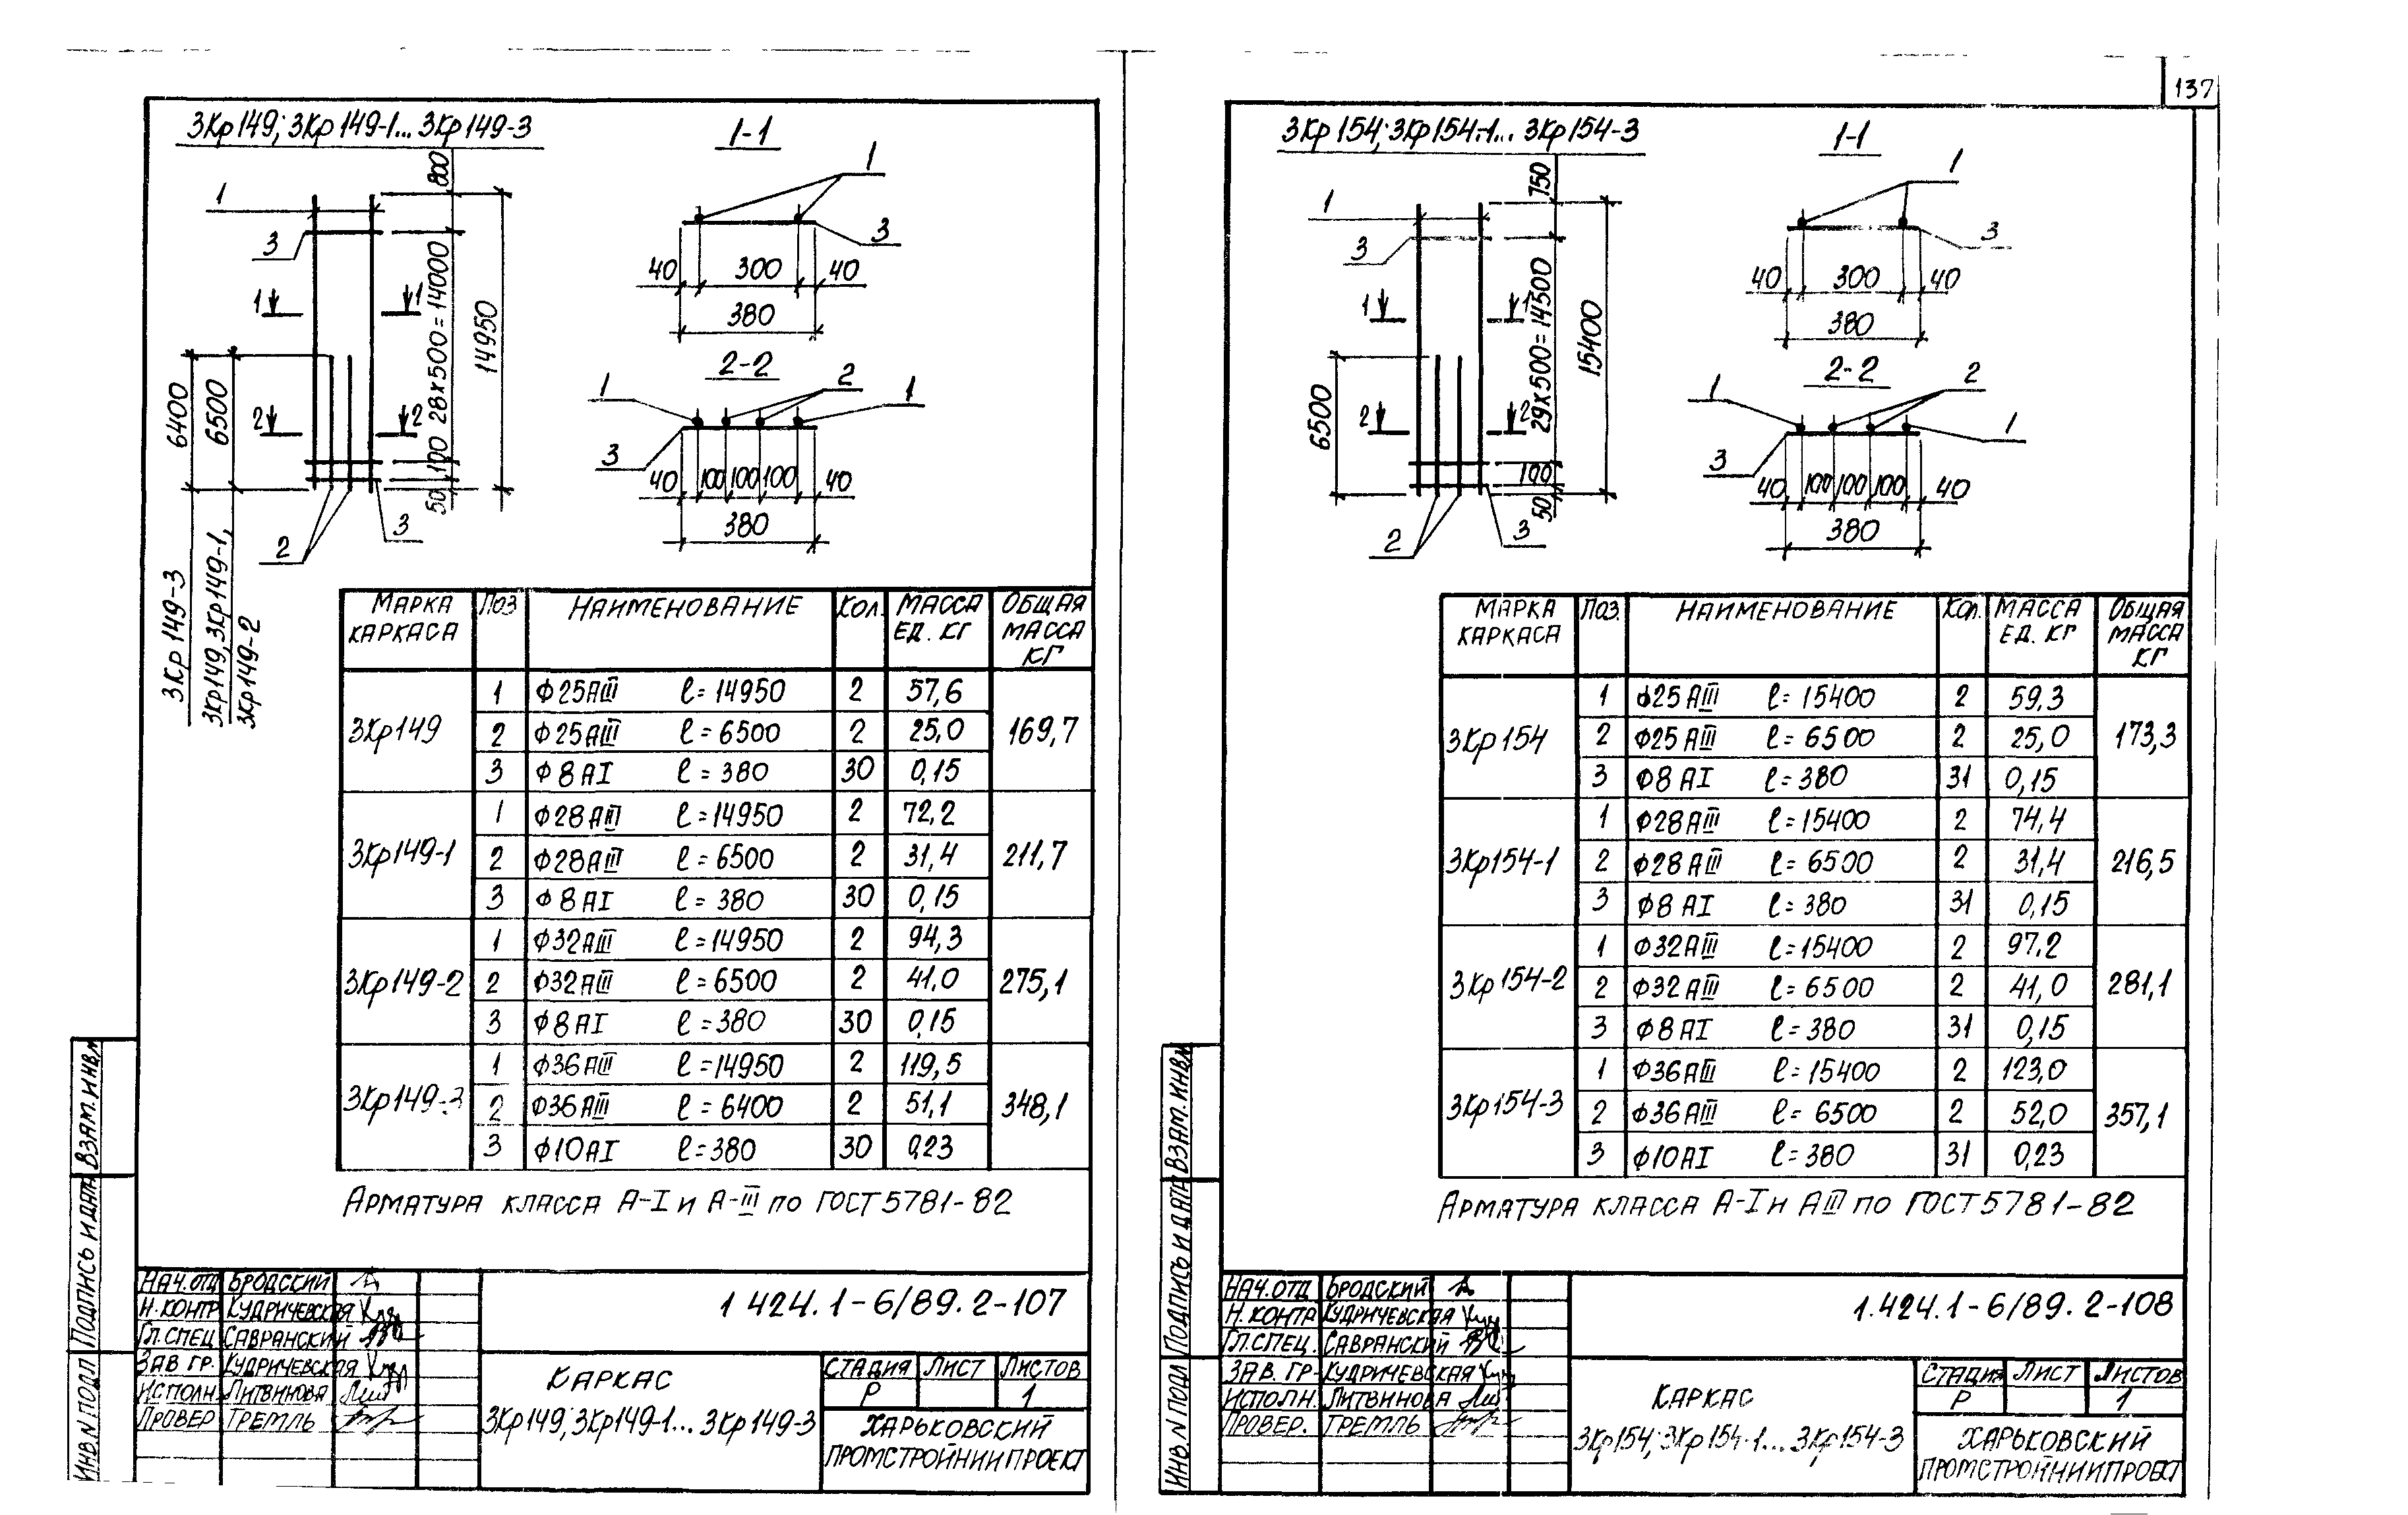 137
3Кр149; 3Кр149-1... 3Кр149-3
1-1
1
3
800
28×500=14000
14950
100
50
6400
6500
1 1
2 2
2
3
3Кр149-3
3Кр149, 3Кр149-1,
3Кр149-2
1
3
40 300 40
380
2-2
1 2 1
3
40 100 100 100 40
380
МАРКА КАРКАСА ПОЗ НАИМЕНОВАНИЕ КОЛ. МАССА ЕД. КГ ОБЩАЯ МАССА КГ
3Кр149 169,7
1 Ф25АIII ℓ=14950 2 57,6
2 Ф25АIII ℓ=6500 2 25,0
3 Ф8АI ℓ=380 30 0,15
3Кр149-1 211,7
1 Ф28АIII ℓ=14950 2 72,2
2 Ф28АIII ℓ=6500 2 31,4
3 Ф8АI ℓ=380 30 0,15
3Кр149-2 275,1
1 Ф32АIII ℓ=14950 2 94,3
2 Ф32АIII ℓ=6500 2 41,0
3 Ф8АI ℓ=380 30 0,15
3Кр149-3 348,1
1 Ф36АIII ℓ=14950 2 119,5
2 Ф36АIII ℓ=6400 2 51,1
3 Ф10АI ℓ=380 30 0,23
АРМАТУРА КЛАССА А-I и А-III ПО ГОСТ 5781-82
ВЗАМ. ИНВ.N
ПОДПИСЬ И ДАТА
ИНВ.N ПОДЛ
НАЧ.ОТД БРОДСКИЙ
Н.КОНТР КУДРИЧЕВСКАЯ
ГЛ.СПЕЦ САВРАНСКИЙ
ЗАВ ГР. КУДРИЧЕВСКАЯ
ИСПОЛН. ЛИТВИНОВА
ПРОВЕР ТРЕМЛЬ
1.424.1-6/89.2-107
КАРКАС
3Кр149; 3Кр149-1... 3Кр149-3
СТАДИЯ ЛИСТ ЛИСТОВ
Р 1
ХАРЬКОВСКИЙ
ПРОМСТРОЙНИИПРОЕКТ
3Кр154; 3Кр154-1... 3Кр154-3
1-1
1
3
750
29×500=14500
15400
100
50
6500
1 1
2 2
2
3
1
3
40 300 40
380
2-2
1 2 1
3
40 100 100 100 40
380
МАРКА КАРКАСА ПОЗ. НАИМЕНОВАНИЕ КОЛ. МАССА ЕД. КГ ОБЩАЯ МАССА КГ
3Кр154 173,3
1 Ф25АIII ℓ=15400 2 59,3
2 Ф25АIII ℓ=6500 2 25,0
3 Ф8АI ℓ=380 31 0,15
3Кр154-1 216,5
1 Ф28АIII ℓ=15400 2 74,4
2 Ф28АIII ℓ=6500 2 31,4
3 Ф8АI ℓ=380 31 0,15
3Кр154-2 281,1
1 Ф32АIII ℓ=15400 2 97,2
2 Ф32АIII ℓ=6500 2 41,0
3 Ф8АI ℓ=380 31 0,15
3Кр154-3 357,1
1 Ф36АIII ℓ=15400 2 123,0
2 Ф36АIII ℓ=6500 2 52,0
3 Ф10АI ℓ=380 31 0,23
АРМАТУРА КЛАССА А-I и АIII ПО ГОСТ 5781-82
ВЗАМ. ИНВ.N
ПОДПИСЬ И ДАТА
ИНВ.N ПОДЛ
НАЧ.ОТД БРОДСКИЙ
Н.КОНТР КУДРИЧЕВСКАЯ
ГЛ.СПЕЦ. САВРАНСКИЙ
ЗАВ. ГР. КУДРИЧЕВСКАЯ
ИСПОЛН. ЛИТВИНОВА
ПРОВЕР. ТРЕМЛЬ
1.424.1-6/89.2-108
КАРКАС
3Кр154; 3Кр154-1... 3Кр154-3
СТАДИЯ ЛИСТ ЛИСТОВ
Р 1
ХАРЬКОВСКИЙ
ПРОМСТРОЙНИИПРОЕКТ